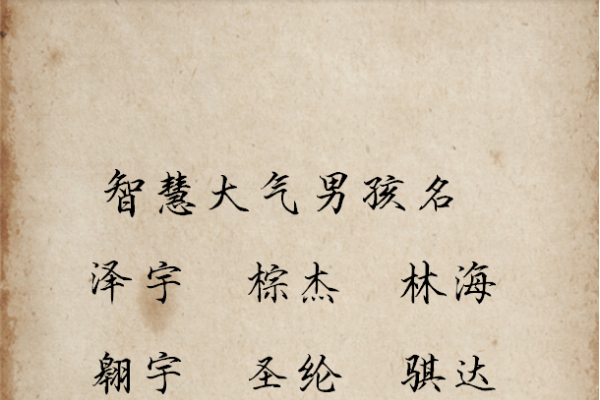 智慧大气男孩名
泽宇 棕杰 林海
翱宇 圣纶 骐达